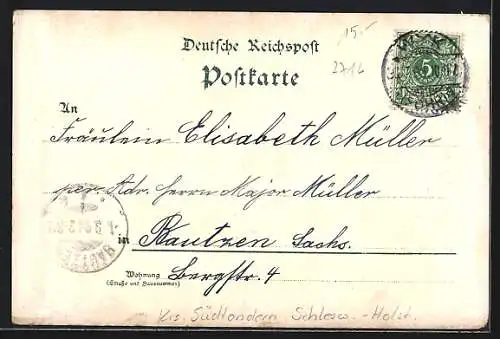 15.-
2714
Deutsche Reichspost
Postkarte
5
An
Fräulein Elisabeth Müller
per. Adr. Herrn Major Müller
in Bautzen Sachs.
Wohnung
(Straße und Hausnummer)
Bergstr. 4
Krs. Südtondern Schlesw. - Holst.